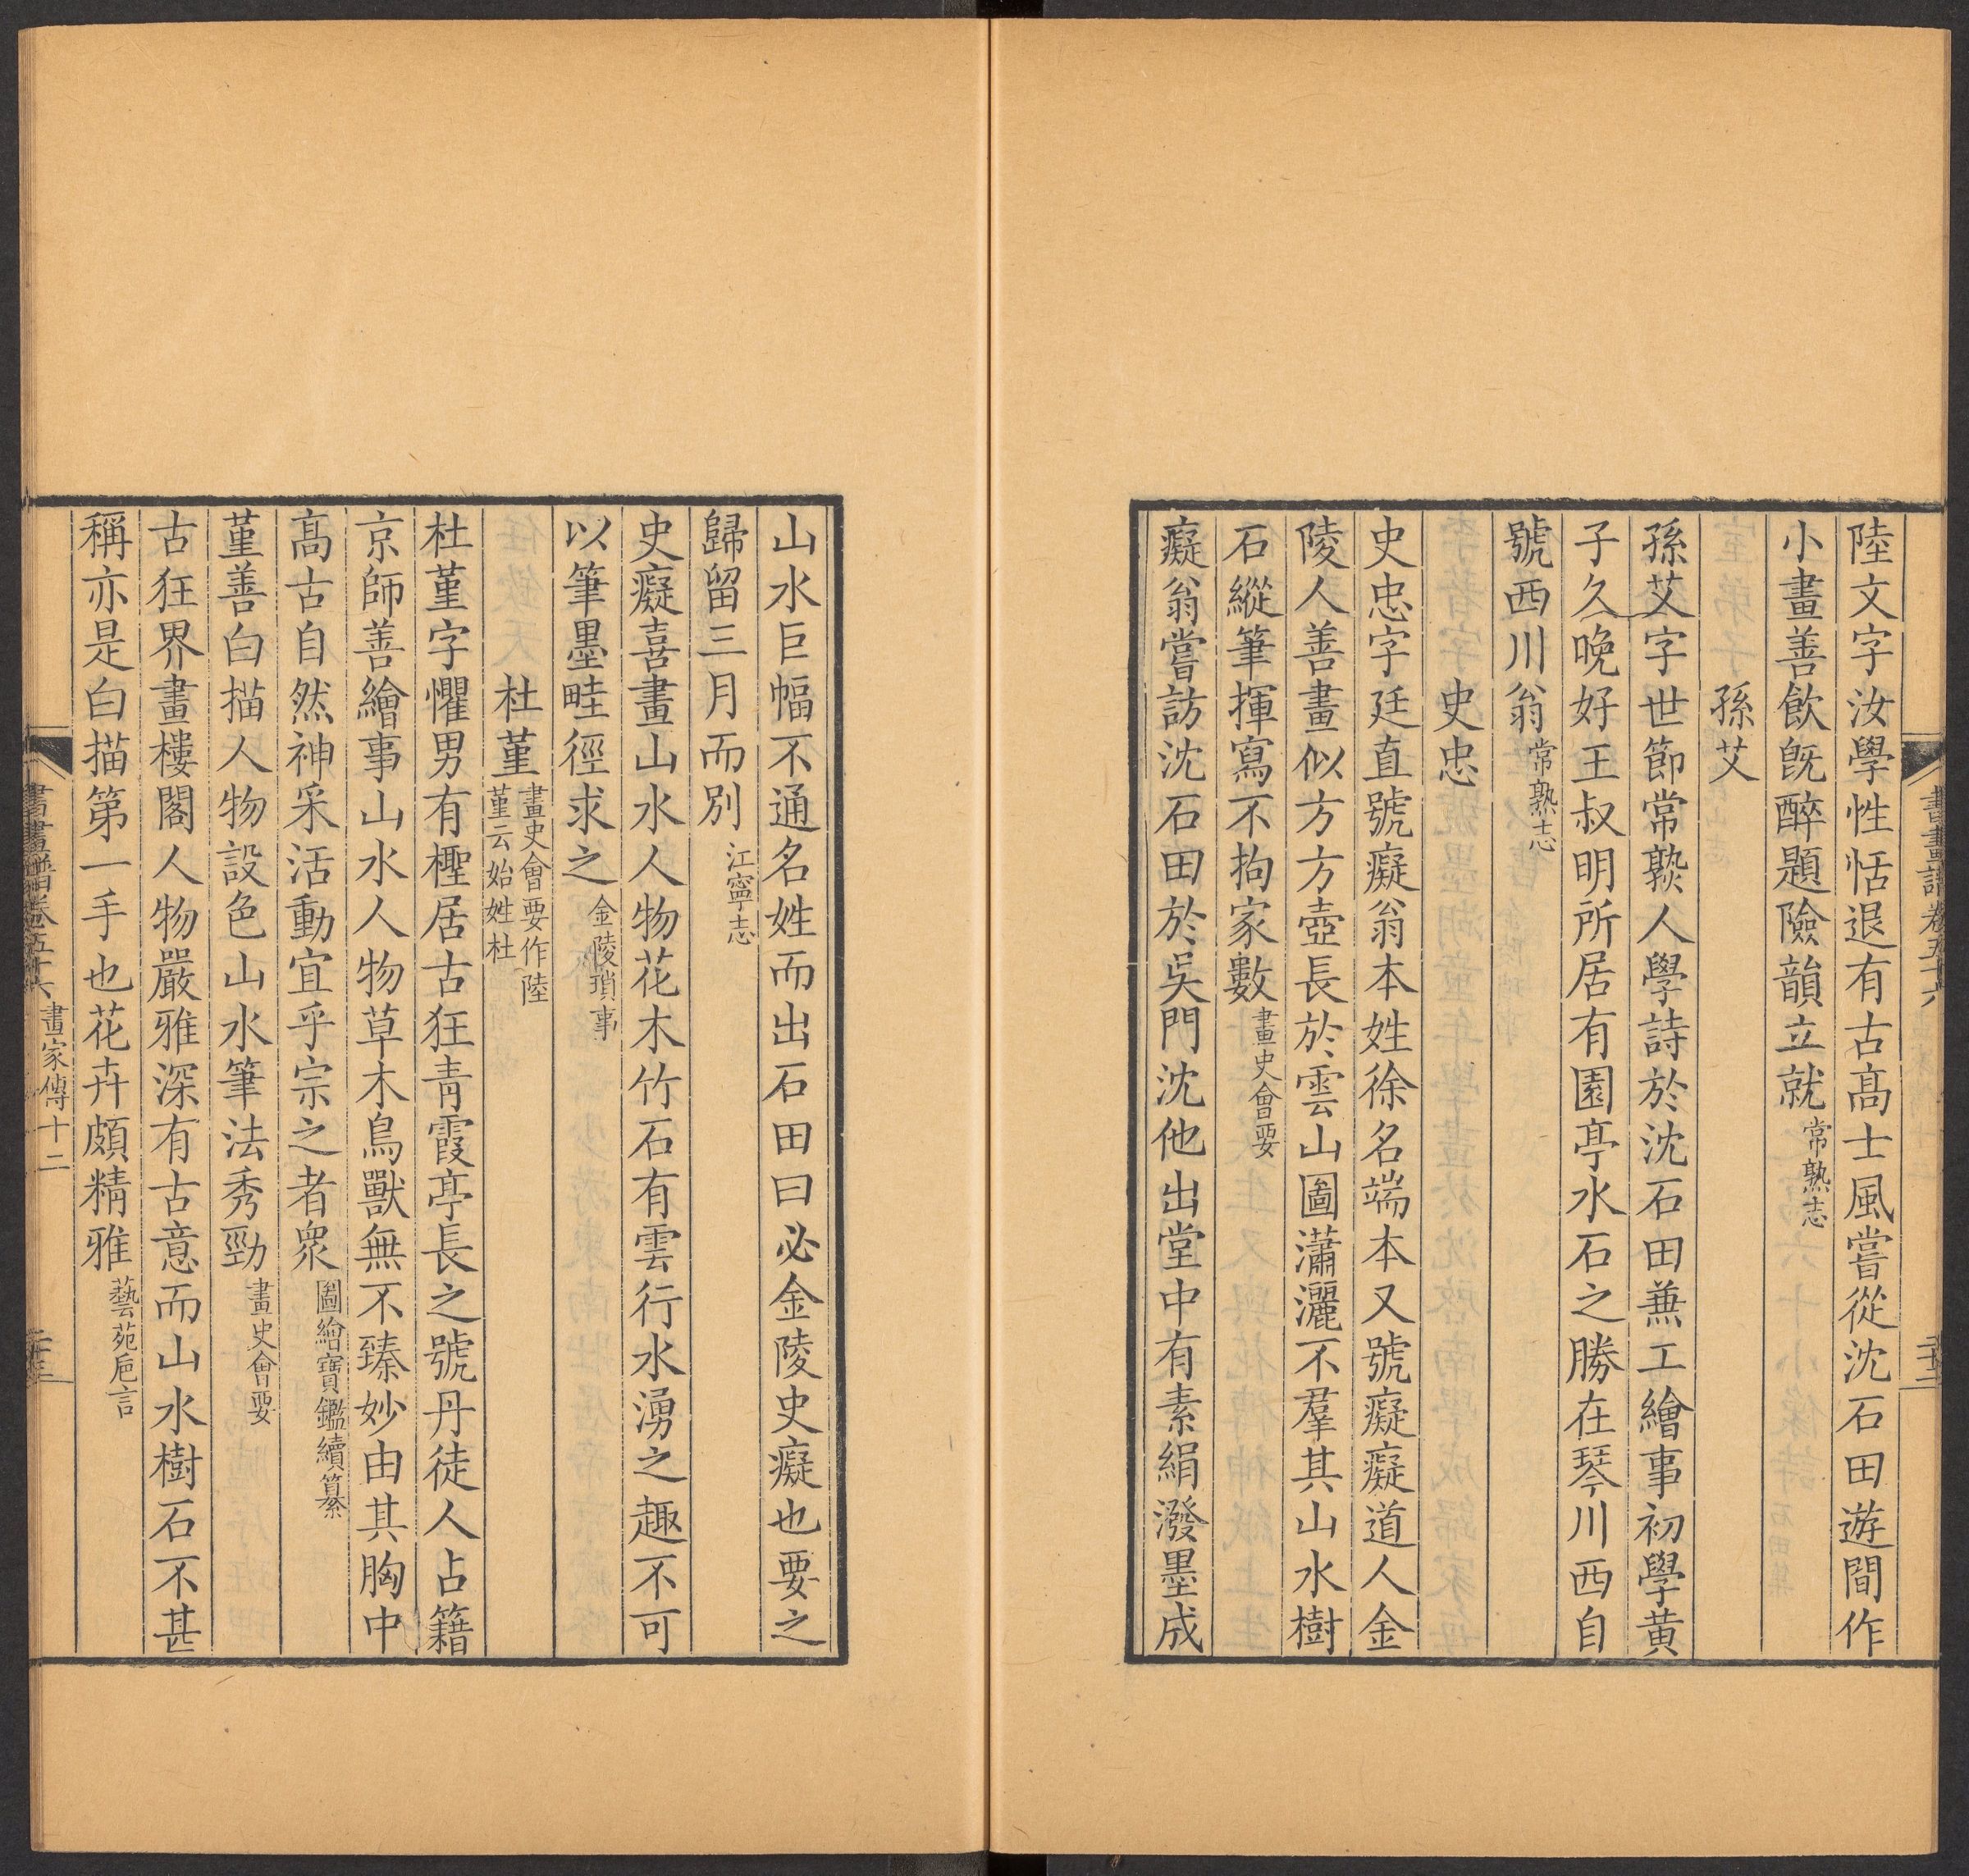 書畫譜卷五十六
陸文字汝學性恬退有古高士風嘗從沈石田遊間作
小畫善飲旣醉題險韻立就常熟志
孫艾
孫艾字世節常熟人學詩於沈石田兼工繪事初學黃
子久晚好王叔明所居有園亭水石之勝在琴川西自
號西川翁常熟志
史忠
史忠字廷直號癡翁本姓徐名端本又號癡癡道人金
陵人善畫似方方壺長於雲山圖瀟灑不羣其山水樹
石縱筆揮寫不拘家數畫史會要
癡翁嘗訪沈石田於吳門沈他出堂中有素絹潑墨成
山水巨幅不通名姓而出石田曰必金陵史癡也要之
歸留三月而別江寧志
史癡喜畫山水人物花木竹石有雲行水湧之趣不可
以筆墨畦徑求之金陵瑣事
杜堇畫史會要作陸堇云始姓杜
杜堇字懼男有檉居古狂青霞亭長之號丹徒人占籍
京師善繪事山水人物草木鳥獸無不臻妙由其胸中
高古自然神采活動宜乎宗之者衆圖繪寶鑑續纂
堇善白描人物設色山水筆法秀勁畫史會要
古狂界畫樓閣人物嚴雅深有古意而山水樹石不甚
稱亦是白描第一手也花卉頗精雅藝苑巵言
書畫譜卷五十六 畫家傳十二